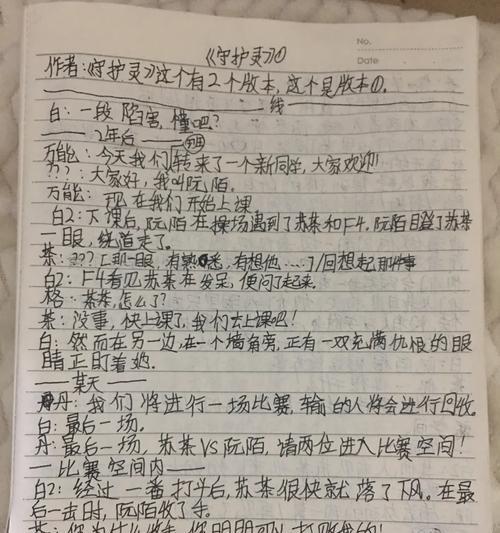 《守护灵》①
No.
Date
作者:《守护灵》这个有2个版本,这个是版本①.
线
白:一段陷害,懂吧?
——2年后——
万能:今天我们班转来了一个新同学,大家欢迎!
???:大家好,我叫阮陌.
万能:现在我们开始上课
白2:下课后,阮陌在操场遇到了苏茶和F4.阮陌目登了苏茶
一眼,绕道走了.
茶:???[那一眼,有熟悉,有想他……]/回想起那件事
白2:F4看见苏茶在发呆,便问了起来.
格:茶茶,怎么了?
茶:没事,快上课了,我们去上课吧!
白:然而在另一边,在一个墙角旁,正有一双充满仇恨的眼
睛正盯着她.
——某天——
丹:我们将进行一场比赛,输的人将会进行回收.
白:最后一场.
丹:最后一场,苏茶VS阮陌,请两位进入比赛空间!
一比赛空间内——
白2:经过一番打斗后,苏茶很快就落了下风.在最
后一击时,阮陌收了手.
茶:你为什么收手,你明明可以打败我的!